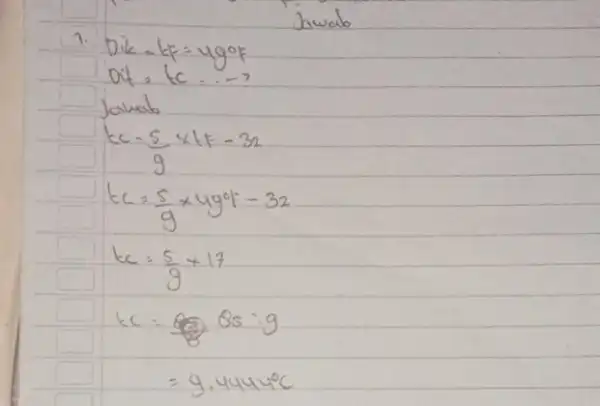 Jawab
1. Dik = tF = 49°F
Dit = tC ... ?
Jawab
tC = 5/9 × tF - 32
tC = 5/9 × 49°F - 32
tC = 5/9 × 17
tC = 85 : 9
= 9,4444°C